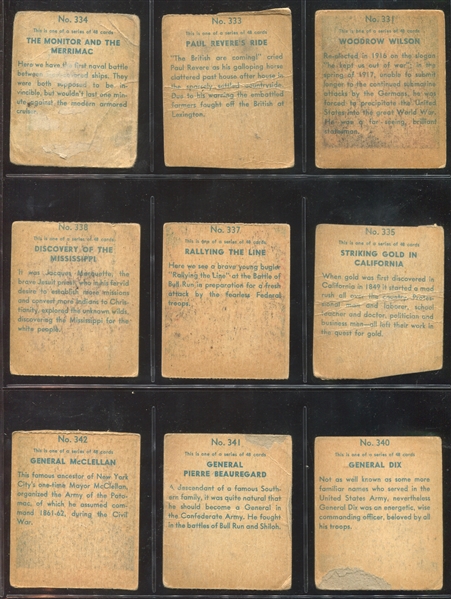 No. 334
This is one of a series of 48 cards
THE MONITOR AND THE
MERRIMAC
Here we have the first naval battle
between ships. They
were both supposed to be in-
vincible, but wouldn't last one min-
ute against the modern armored
No. 333
This is one of a series of 48 cards
PAUL REVERE'S RIDE
"The British are coming!" cried
Paul Revere as his galloping horse
clattered past house after house in
the sparsely settled countryside.
Due to his warning the embattled
farmers fought off the British at
Lexington.
No. 331
This is one of a series of 48 cards
WOODROW WILSON
Re-elected in 1916 on the slogan
"he kept us out of war", in the
spring of 1917, unable to submit
longer to the continued submarine
attacks by the Germans, he was
forced to precipitate the United
States into the great World War.
He was a far seeing, brilliant
statesman.
No. 338
This is one of a series of 48 cards
DISCOVERY OF THE
MISSISSIPPI
It was Jacques Marquette, the
brave Jesuit priest, who in his fervid
desire to establish more missions
and convert more Indians to Chris-
tianity, explored the unknown wilds,
discovering the Mississippi for the
white people.
No. 337
This is one of a series of 48 cards
RALLYING THE LINE
Here we see a brave young bugler
"Rallying the Line" at the Battle of
Bull Run in preparation for a fresh
attack by the fearless Federal
troops.
No. 335
This is one of a series of 48 cards
STRIKING GOLD IN
CALIFORNIA
When gold was first discovered in
California in 1849 it started a mad
rush all over the country.
men and laborer, school
teacher and doctor, politician and
business man—all left their work in
the quest for gold.
No. 342
This is one of a series of 48 cards
GENERAL McCLELLAN
This famous ancestor of New York
City's one-time Mayor McClellan,
organized the Army of the Poto-
mac, of which he assumed com-
mand 1861-62, during the Civil
War.
No. 341
This is one of a series of 48 cards
GENERAL
PIERRE BEAUREGARD
A descendant of a famous South-
ern family, it was quite natural that
he should become a General in
the Confederate Army. He fought
in the battles of Bull Run and Shiloh.
No. 340
This is one of a series of 48 cards
GENERAL DIX
Not as well known as some more
familiar names who served in the
United States Army, nevertheless
General Dix was an energetic, wise
commanding officer, beloved by all
his troops.